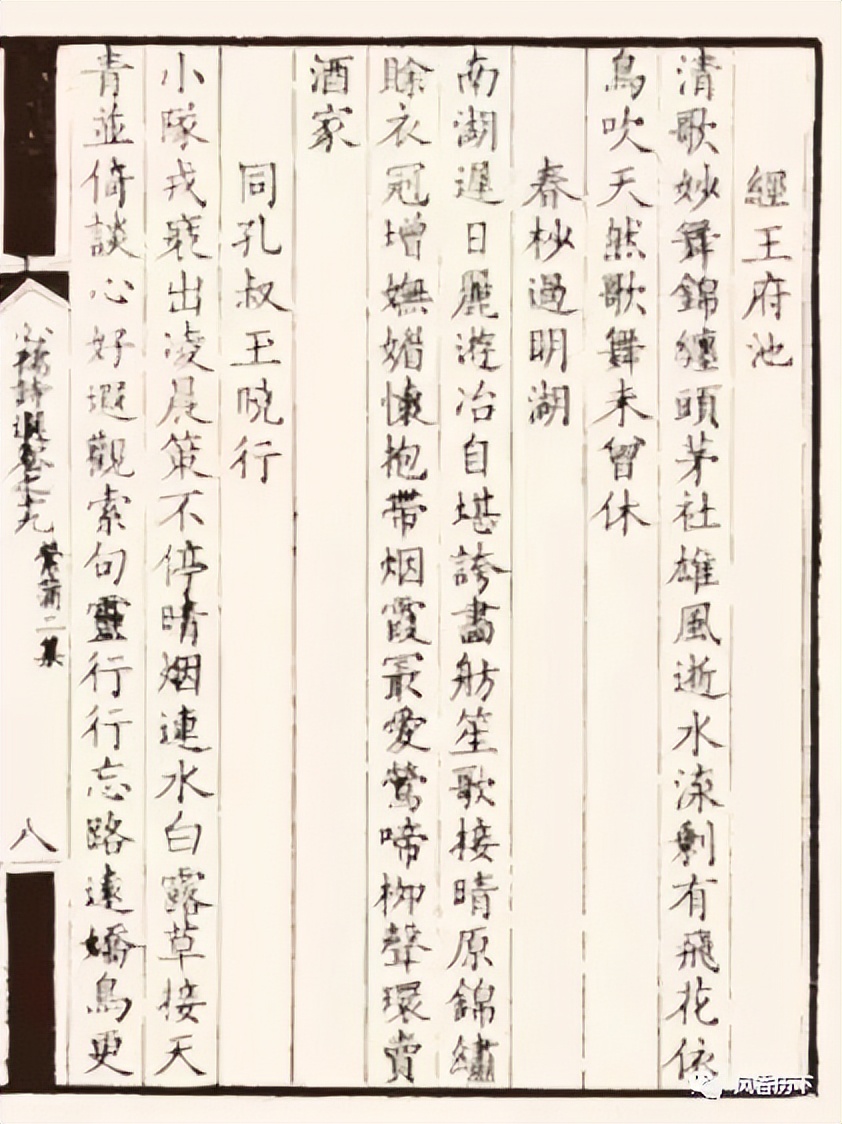 經王府池
清歌妙舞錦纏頭茅社雄風逝水流剩有飛花依
鳥吹天然歌舞未曾休
春杪過明湖
南湖遲日麗遊冶自堪誇畫舫笙歌接晴原錦繡
賖衣冠增嫵媚懷抱帶烟霞最愛鶯啼柳聲環賣
酒家
同孔叔玉曉行
小隊戎裝出凌晨策不停晴烟連水白露草接天
青並倚談心好遐觀索句靈行行忘路遠嬌鳥更
詩選卷之九
二集
八
风香历下